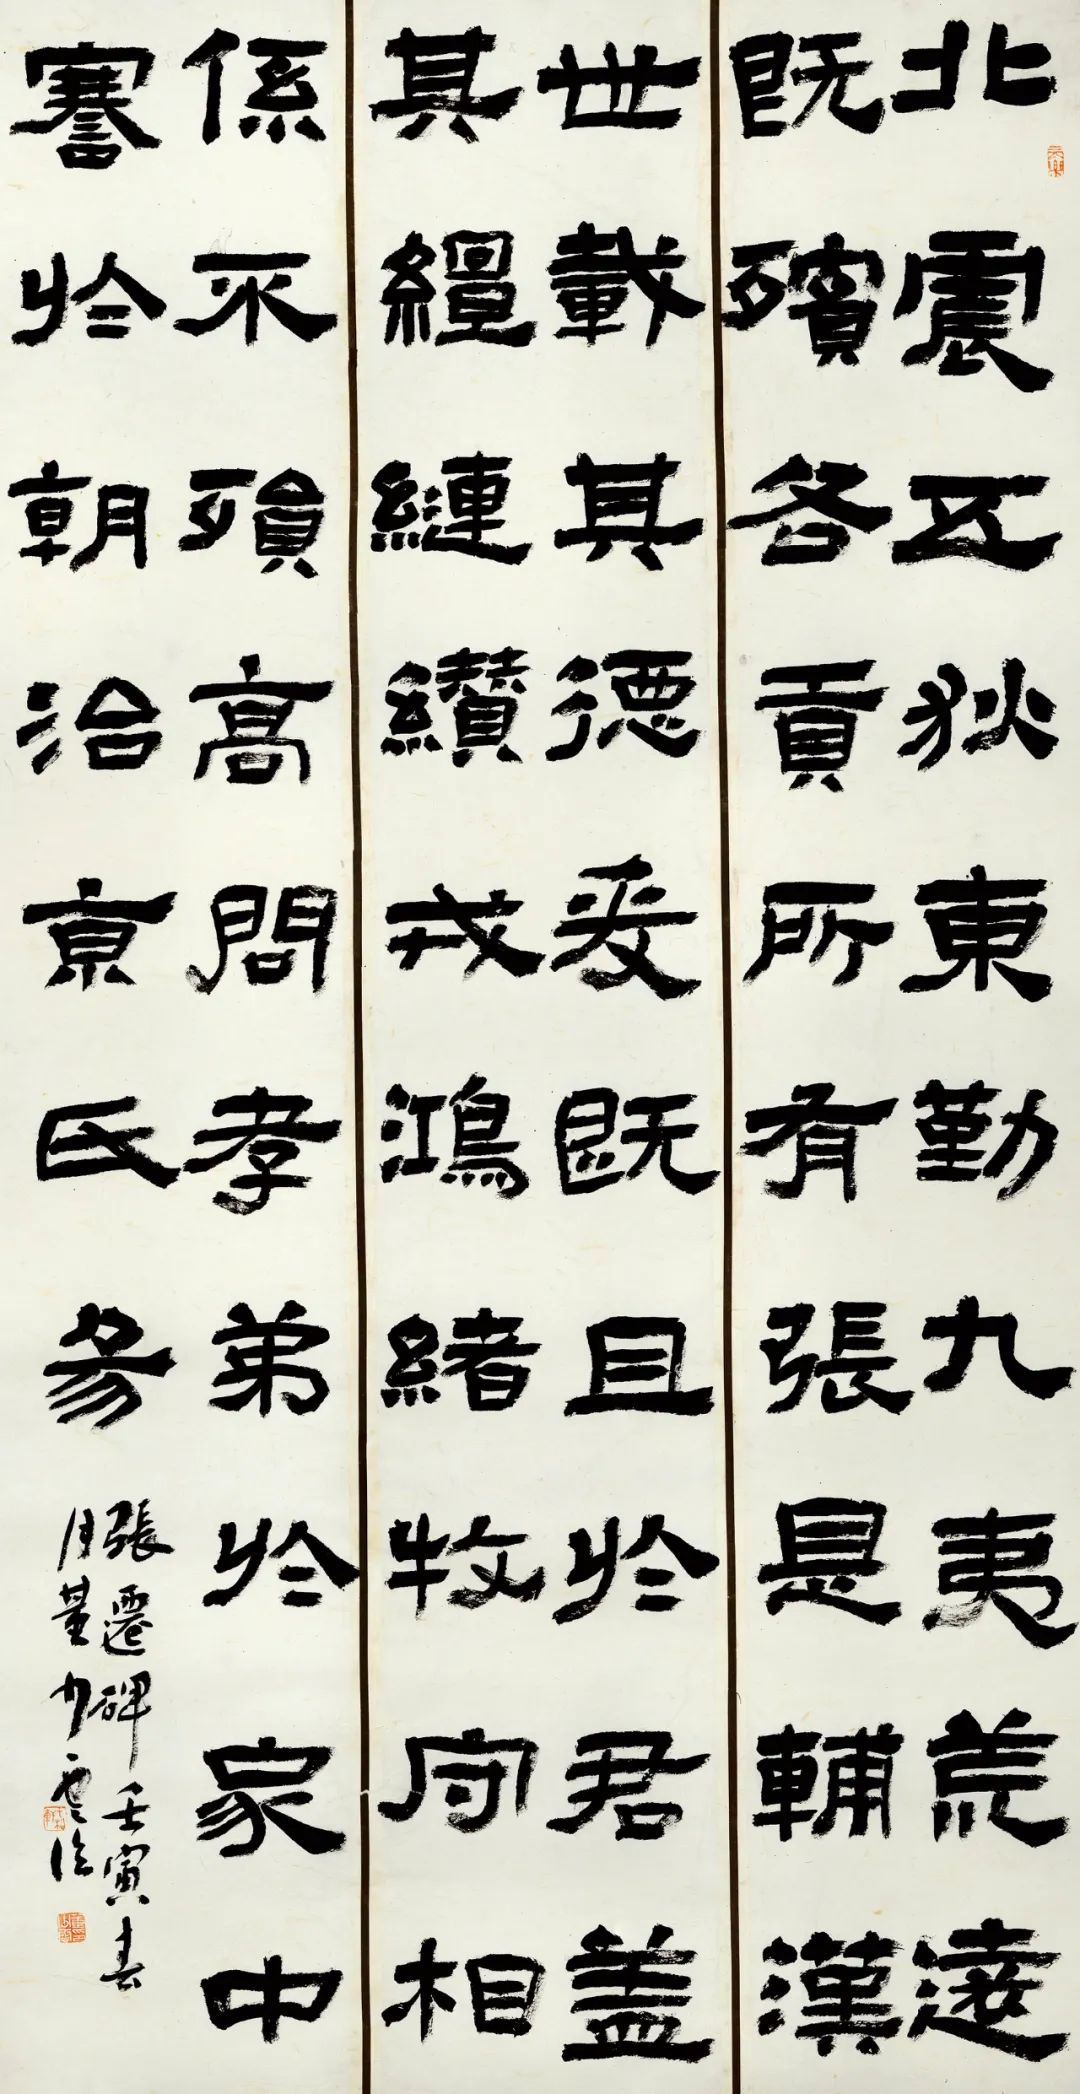 北震五狄東勤九夷荒遠
既殯各貢所有張是輔漢
世載其德爰既且於君蓋
其繵縺纘戎鴻緒牧守相
係不殞高問孝弟於家中
謇於朝治京氏易
張遷碑壬寅春
月董少雲臨